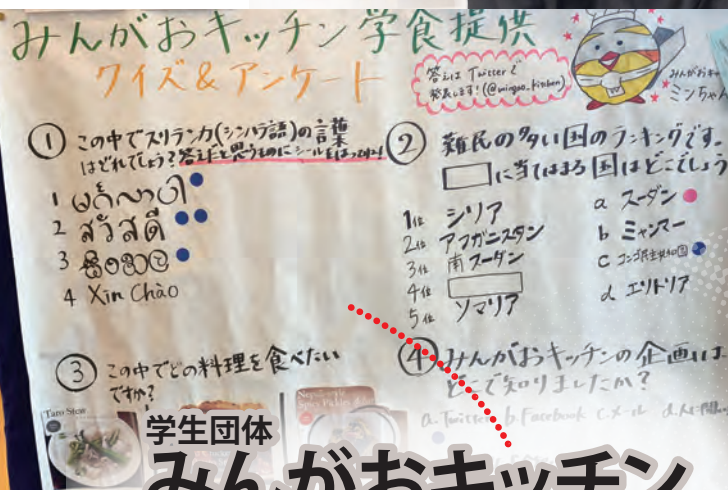 みんがおキッチン学食提供
クイズ&アンケート
答えは Twitterで
発表します!(@mingao_kitchen)
みんがおキッチン
ミンちゃん
① この中でスリランカ(シンハラ語)の言葉
はどれでしょう?答えだと思うものにシールをはってね!
1
2 สวัสดี
3
4 Xin Chào
② 難民の多い国のランキングです。
□に当てはまる国はどこでしょう
1位 シリア
2位 アフガニスタン
3位 南スーダン
4位
5位 ソマリア
a スーダン
b ミャンマー
c コンゴ民主共和国
d エリトリア
③ この中でどの料理を食べたい
ですか?
Taro Stew
④ みんがおキッチンの企画は
どこで知りましたか?
a. Twitter b. Facebook c. メール d. 人に聞い
学生団体
みんがおキッチン